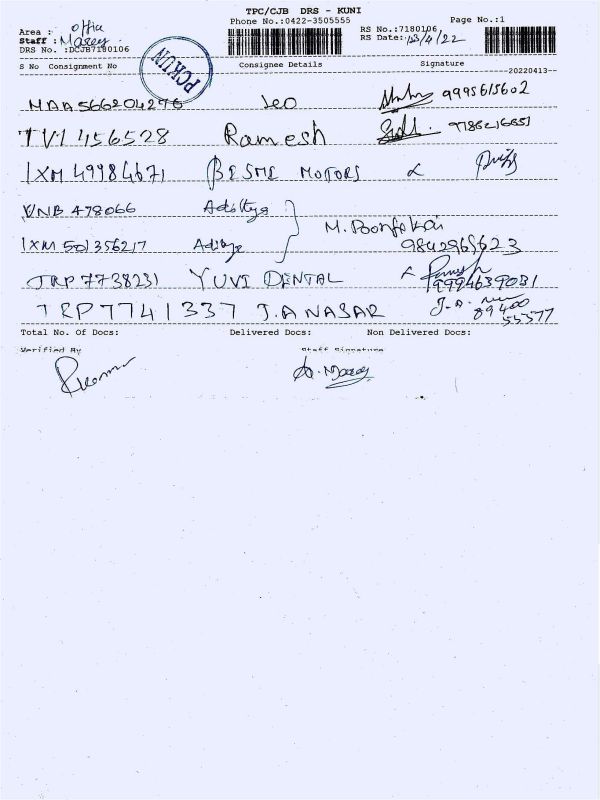 TPC/CJB DRS - KUNI
Phone No.:0422-3505555 Page No.:1
Area : Office RS No.:7180106
Staff : RS Date: 13/4/22
DRS No. :DCJB7180106
PCKUN
S No Consignment No Consignee Details Signature
--20220413--
MAA566204296 Leo 9995615602
TVI 456528 Ramesh 9786216651
IXM 49984671 BESME MOTORS
VNB 478066 Adithya
M.
IXM 501356217 Aditya 9842965623
JRP 7738231 YUVI DENTAL 9994639031
TRP7741337 J.A NASAR J.A. 89400
55577
Total No. Of Docs: Delivered Docs: Non Delivered Docs:
Verified By Staff Signature